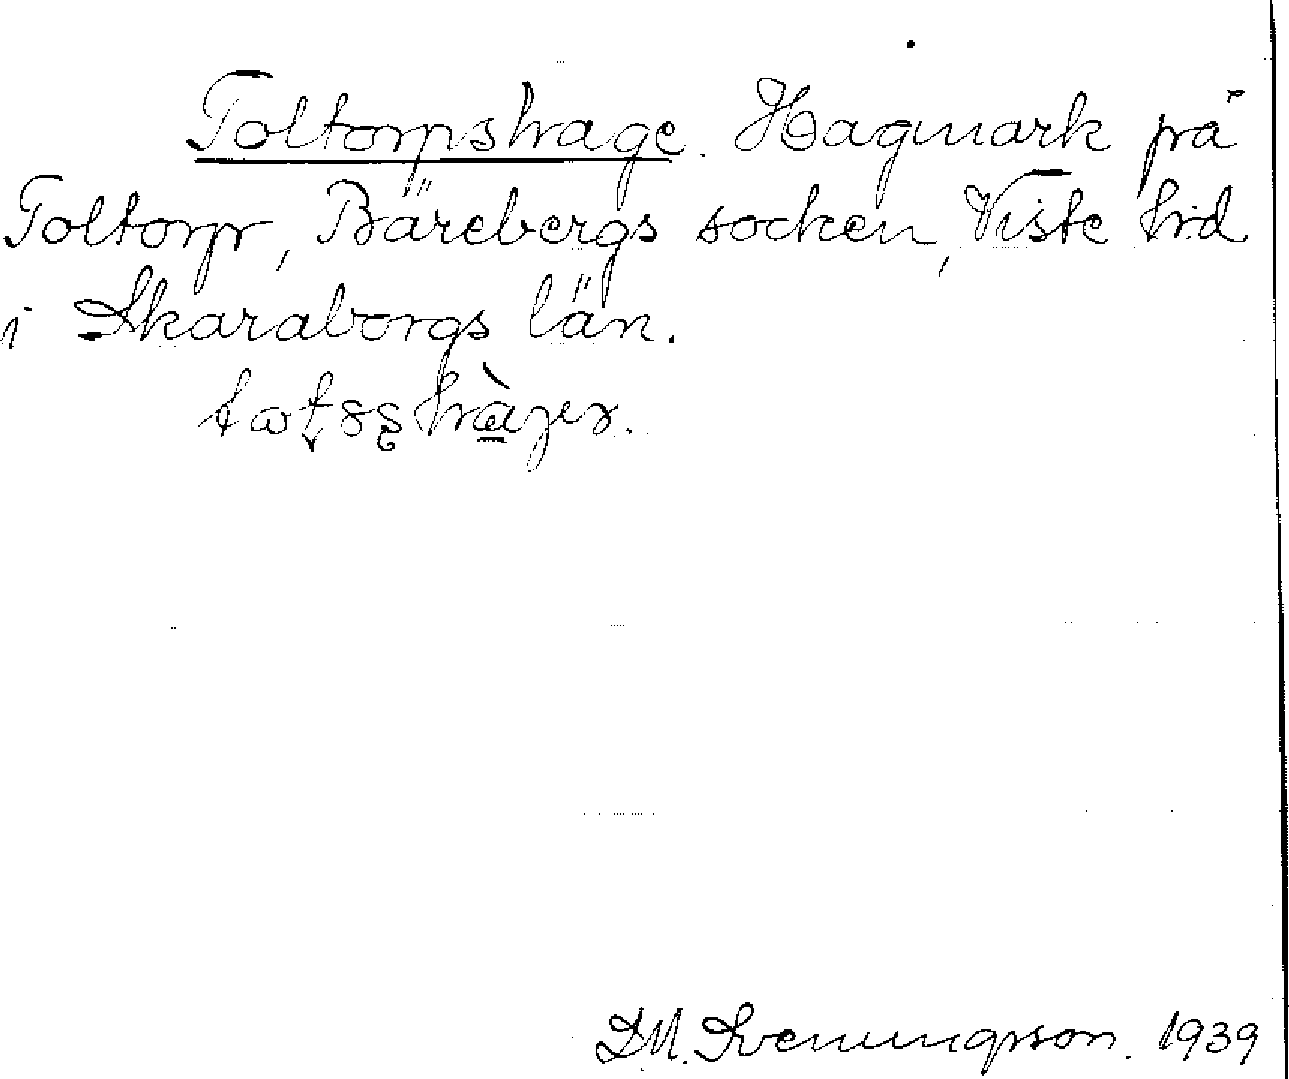 Toltorpshage. Hagmark på
Toltorp, Bärebergs socken, Viste hd
i Skaraborgs län.
D.M. Svenungsson. 1939